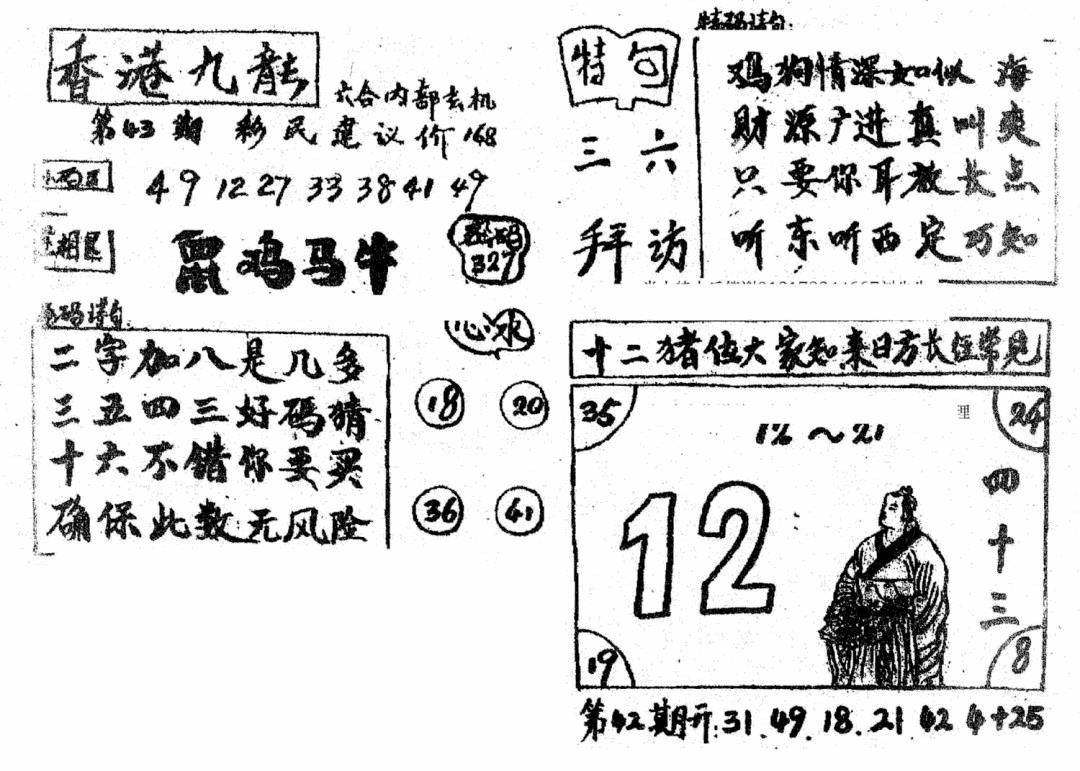 香港九龍
六合内部玄机
第43期 彩民建议价168
4 9 12 27 33 38 41 49
鼠鸡马牛
327
心水
码诗句
二字加八是几多
三五四三好码猜
十六不错你要买
确保此数无风险
18 20
36 41
特句
三六
拜访
特码诗句:
鸡狗情深如似海
财源广进真叫爽
只要你耳放长点
听东听西定巧知
十二猪位大家知来日方长经常见
35 24
理
12
四十三
19 8
第42期开:31.49.18.21.42 4+25